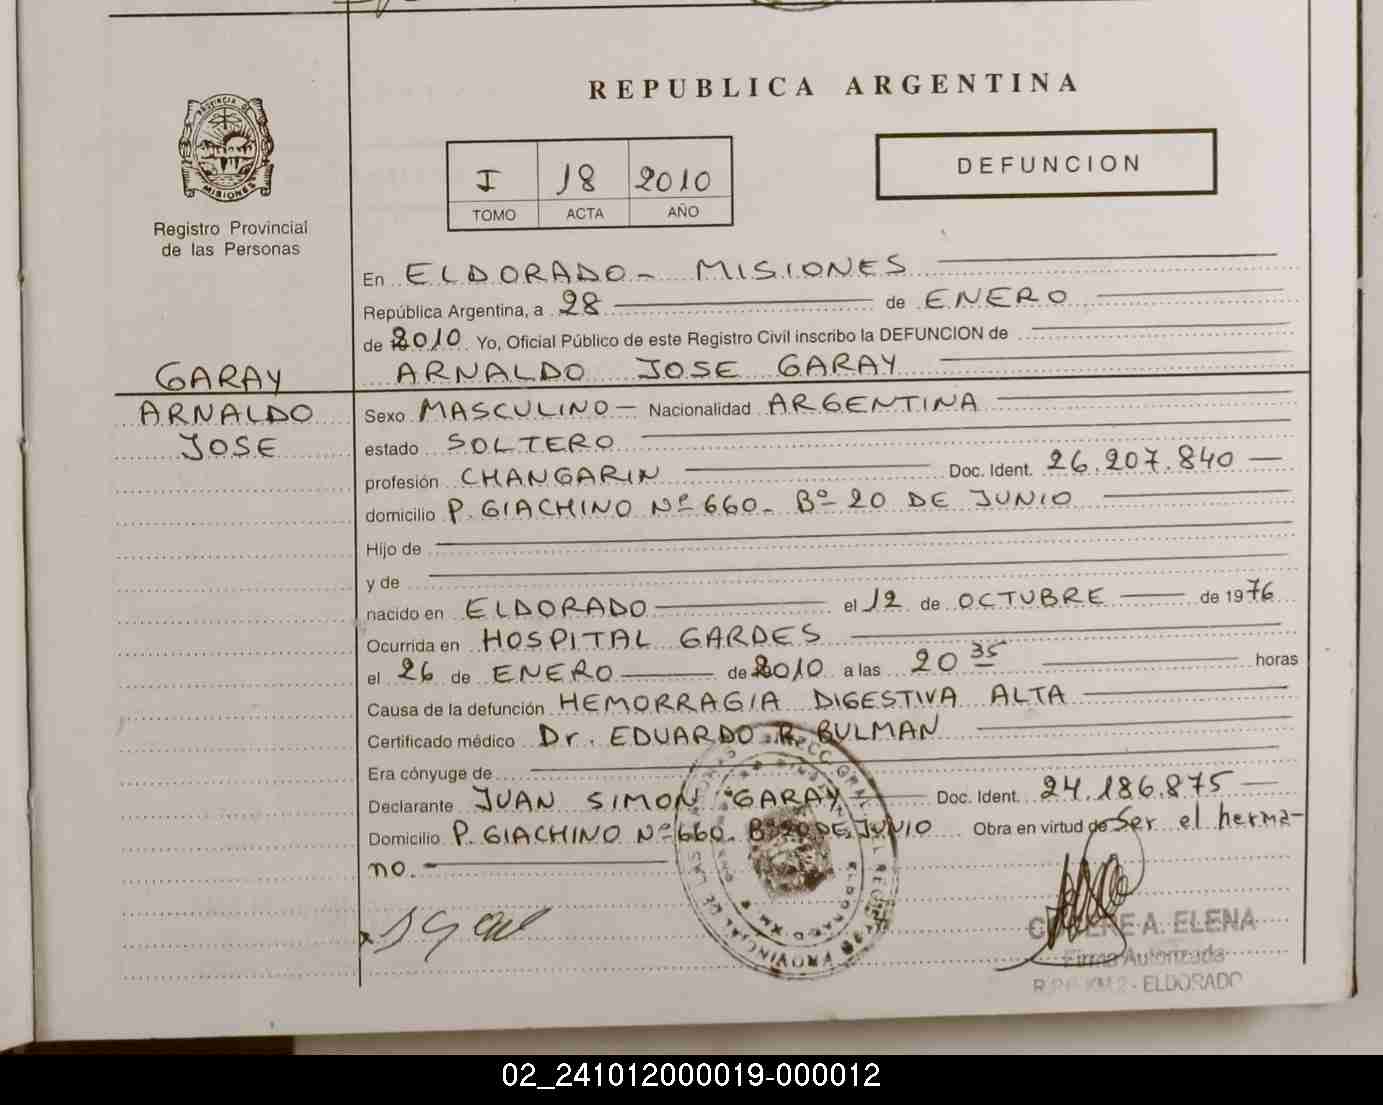 REPUBLICA ARGENTINA
PROVINCIA DE
MISIONES
Registro Provincial
de las Personas
I 18 2010
TOMO ACTA AÑO
DEFUNCION
En ELDORADO - MISIONES
República Argentina, a 28 de ENERO
de 2010 Yo, Oficial Público de este Registro Civil inscribo la DEFUNCION de
GARAY
ARNALDO
JOSE
ARNALDO JOSE GARAY
Sexo MASCULINO - Nacionalidad ARGENTINA
estado SOLTERO
profesión CHANGARIN Doc. Ident. 26.207.840
domicilio P. GIACHINO Nº 660. Bº 20 DE JUNIO
Hijo de
y de
nacido en ELDORADO el 12 de OCTUBRE de 1976
Ocurrida en HOSPITAL GARDES
el 26 de ENERO de 2010 a las 20 35 horas
Causa de la defunción HEMORRAGIA DIGESTIVA ALTA
Certificado médico Dr. EDUARDO R. BULMAN
Era cónyuge de
Declarante JUAN SIMON GARAY Doc. Ident. 24.186.875
Domicilio P. GIACHINO Nº 660. Bº 20 DE JUNIO Obra en virtud de Ser el herma-
no.
PROVINCIAL DE LAS
ELDORADO KM. 2
A. ELENA
Firma Autorizada
KM 2 - ELDORADO
02_241012000019-000012